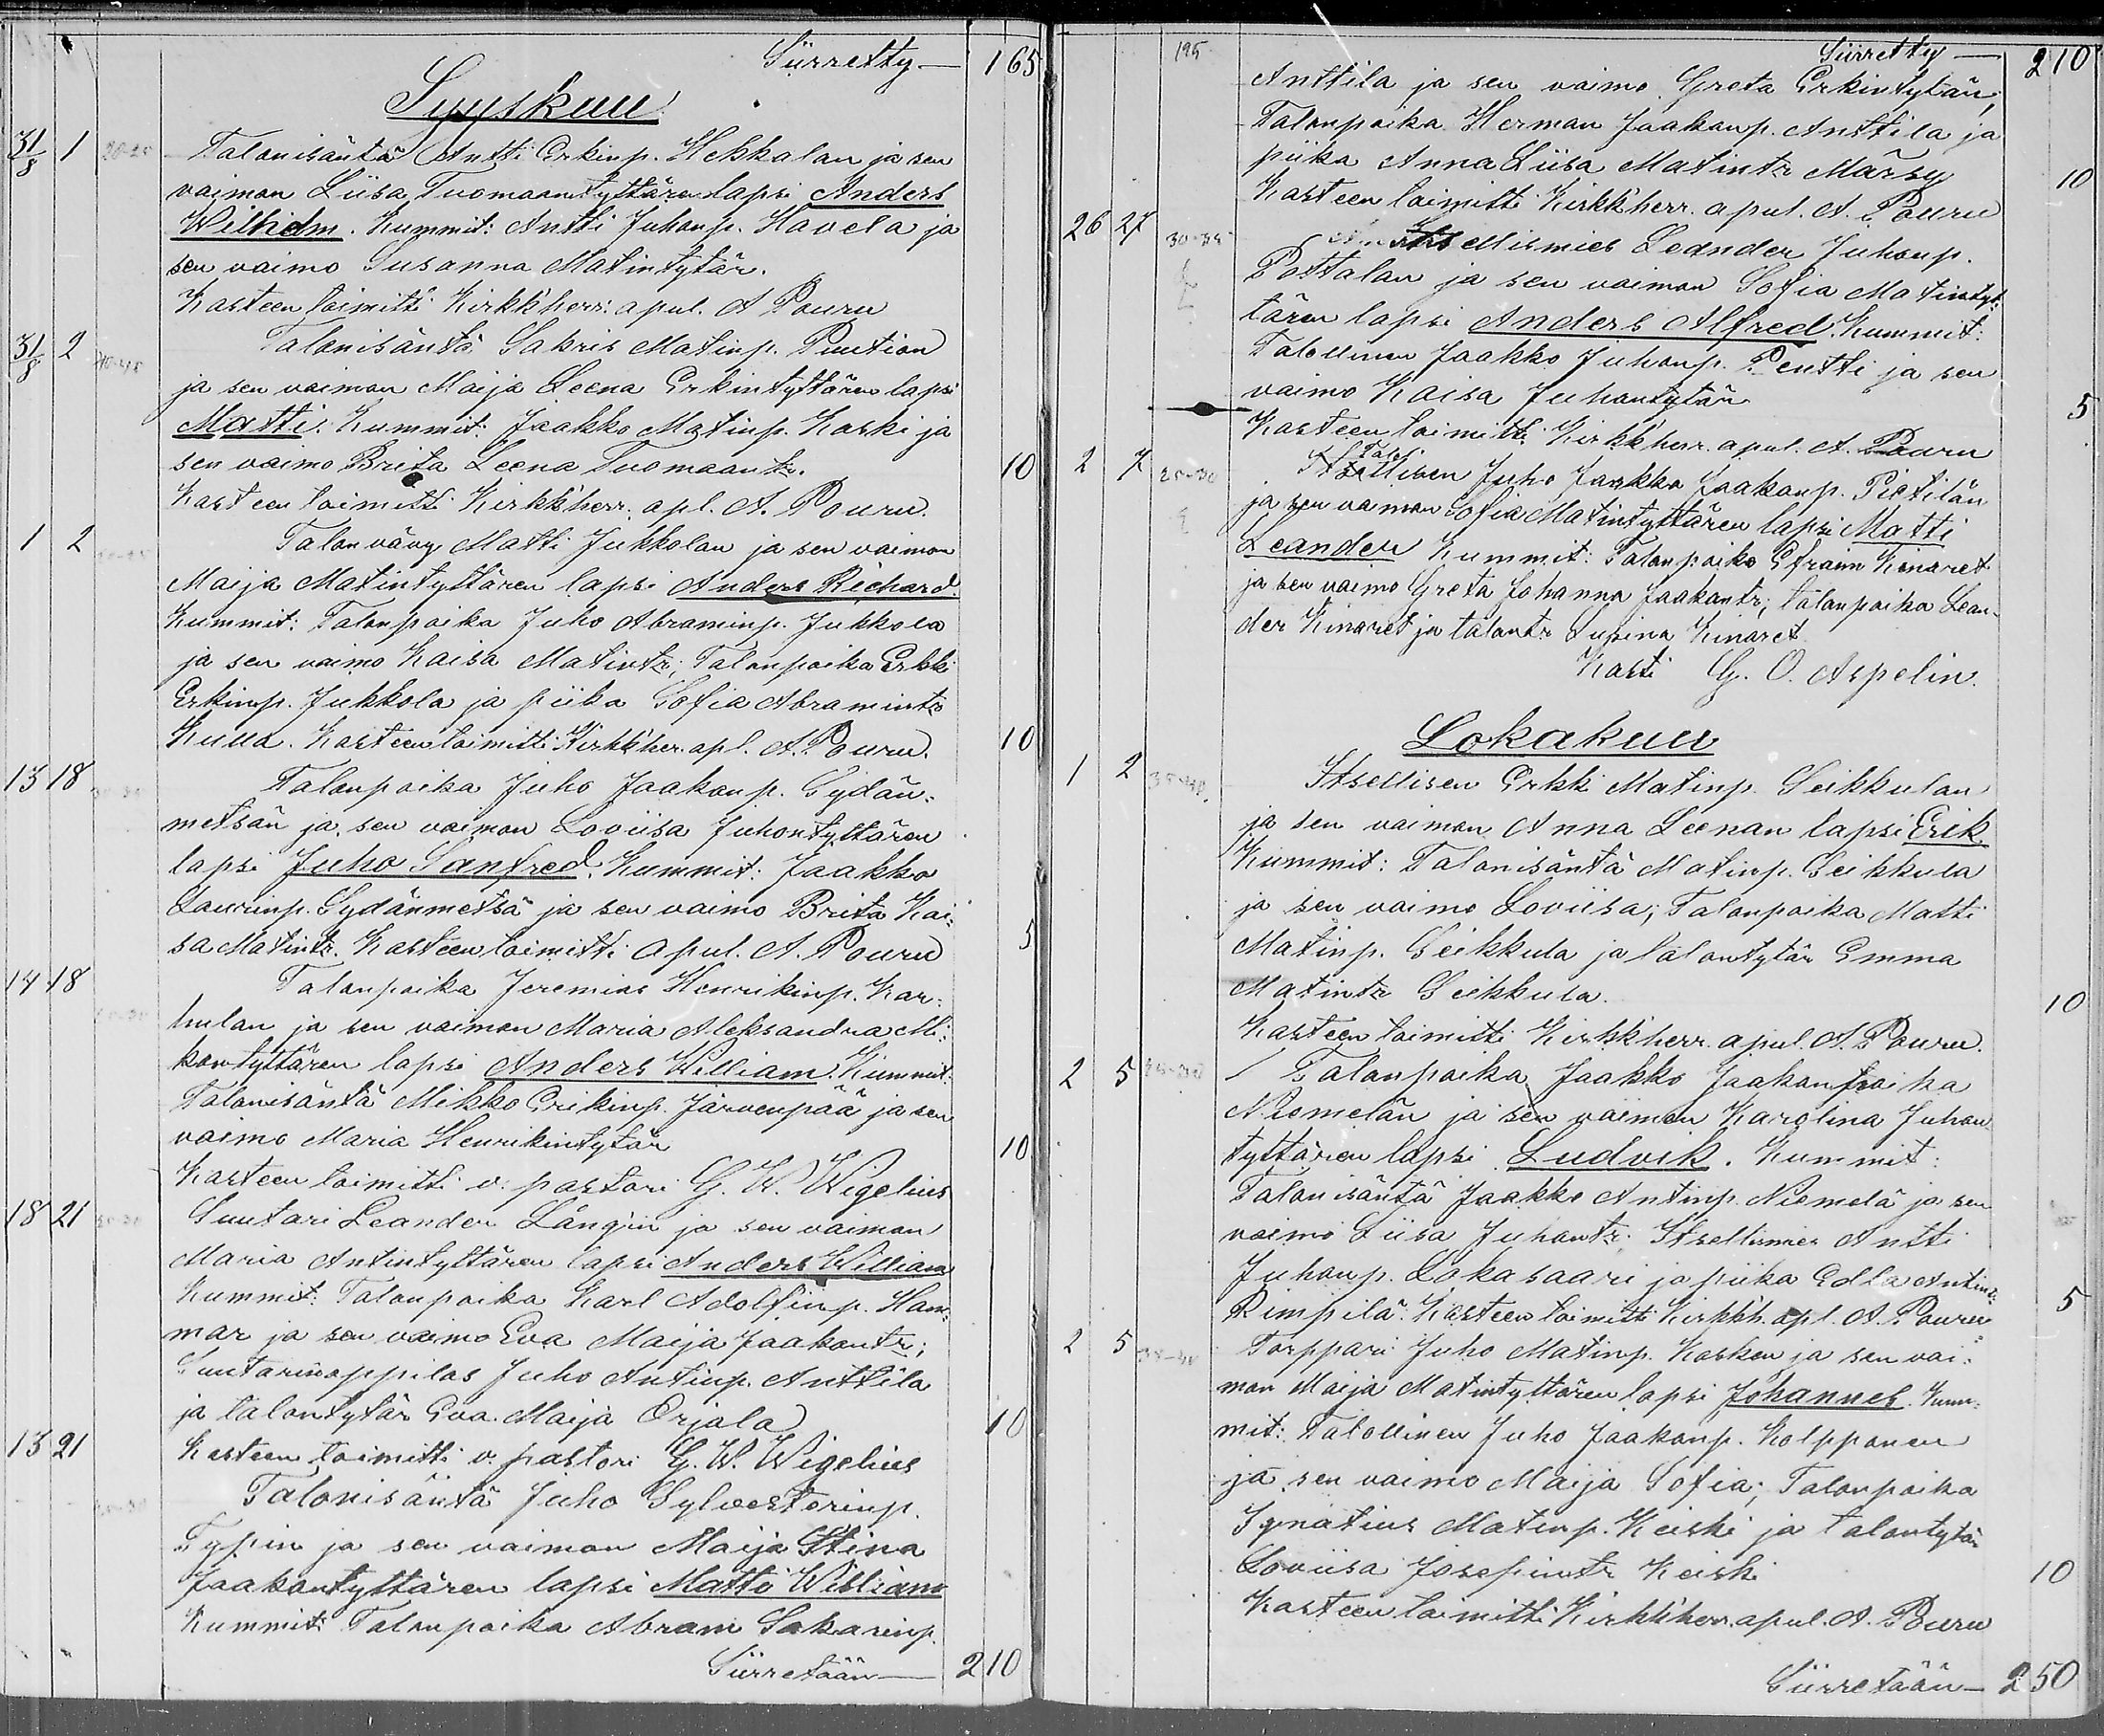 Siirretty — 165
Syyskuu
31/8 1 20-25 Talonisäntä Antti Erkinp. Hekkalan ja sen
vaimon Liisa Tuomaantyttären lapsi Anders
Wilhelm. Kummit: Antti Juhanp. Havela ja
sen vaimo Susanna Matintytär.
Kasteen toimitti Kirkk'herr. apul. A Pouru
31/8 2 40-45 Talonisäntä Sakris Matinp. Puution
ja sen vaimon Maija Leena Erkintyttären lapsi
Matti. Kummit: Jaakko Matinp. Kaski ja
sen vaimo Brita Leena Tuomaantr. 10
Kasteen toimitti Kirkk'herr. apl. A. Pouru.
1 2 Talon vävy Matti Jukkolan ja sen vaimon
Maija Matintyttären lapsi Anders Richard.
Kummit: Talonpoika Juho Abraminp. Jukkola
ja sen vaimo Kaisa Matintr; Talonpoika Erkki
Erkinp. Jukkola ja piika Sofia Abramintr
Kulla. Kasteen toimitti Kirkk'her. apl. A. Pouru. 10
13 18 Talonpoika Juho Jaakonp. Sydän-
metsän ja sen vaimon Loviisa Juhontyttären
lapsi Juho Sanfred. Kummit: Jaakko
Laurinp. Sydänmetsä ja sen vaimo Brita Kai-
sa Matintr. Kasteen toimitti apul. A. Pouru 5
14 18 Talonpoika Jeremias Henrikinp. Kar-
hulan ja sen vaimon Maria Aleksandra Mi-
kontyttären lapsi Anders William. Kummit:
Talonisäntä Mikko Erikinp. Järvenpää ja sen
vaimo Maria Henrikintytär 10
Kasteen toimitti v. pastori G. W. Wigelius
18 21 Suutari Leander Långin ja sen vaimon
Maria Antintyttären lapsi Anders William
Kummit: Talonpoika Karl Adolfinp. Ham-
mar ja sen vaimo Eva Maija Jaakontr;
Suutarinoppilas Juho Antinp. Anttila
ja talontytär Eva Maija Orjala 10
13 21 Kasteen toimitti v. pastori G. W. Wigelius
Talonisäntä Juho Sylvesterinp.
Typin ja sen vaimon Maija Stina
Jaakontyttären lapsi Matti William
Kummit: Talonpoika Abram Sakarinp.
Siirretään — 210
195 Siirretty — 210
Anttila ja sen vaimo Greta Erkintytär;
Talonpoika Herman Jaakonp. Anttila ja
piika Anna Liisa Matintr Märsy 10
Kasteen toimitti Kirkk'herr. apul. A. Pouru
26 27 30-35 Itsellismies Leander Juhonp.
Pottalan ja sen vaimon Sofia Matintyt-
tären lapsi Anders Alfred. Kummit:
Talollinen Jaakko Juhonp. Pentti ja sen
vaimo Kaisa Juhontytär 5
Kasteen toimitti Kirkk'herr. apul. A. Pouru
2 7 25-30 Talollisen Juho Jaakko Jaakonp. Pietilän
ja sen vaimon Sofia Matintyttären lapsi Matti
Leander Kummit: Talonpoika Efraim Kinaret
ja sen vaimo Greta Johanna Jaakontr; talonpoika Lean-
der Kinaret ja talontr Kinaret
Kasti G. O. Aspelin.
Lokakuu
1 2 35-40. Itsellisen Erkki Matinp. Seikkulan
ja sen vaimon Anna Leenan lapsi Erik.
Kummit: Talonisäntä Matinp. Seikkula
ja sen vaimo Loviisa; Talonpoika Matti
Matinp. Seikkula ja talontytär Emma
Matintr Seikkula. 10
Kasteen toimitti Kirkk'herr. apul. A. Pouru.
2 5 Talonpoika Jaakko Jaakonpoika
Niemelän ja sen vaimon Karolina Juhon-
tyttären lapsi Ludvik. Kummit:
Talonisäntä Jaakko Antinp. Niemelä ja sen
vaimo Liisa Juhontr. Itsellismies Antti
Juhonp. Lokasaari ja piika Edla Antintr.
Rimpilä. Kasteen toimitti Kirkkh. apl. A. Pouru 5
2 5 35-40 Torppari Juho Matinp. Kosken ja sen vai-
mon Maija Matintyttären lapsi Johannes. Kum-
mit: Talollinen Juho Jaakonp. Kolpponen
ja sen vaimo Maija Sofia; Talonpoika
Ignatius Matinp. Keiski ja talontytär
Loviisa Josepintr Keiski 10
Kasteen toimitti Kirkk'herr. apul. A. Pouru
Siirretään — 250